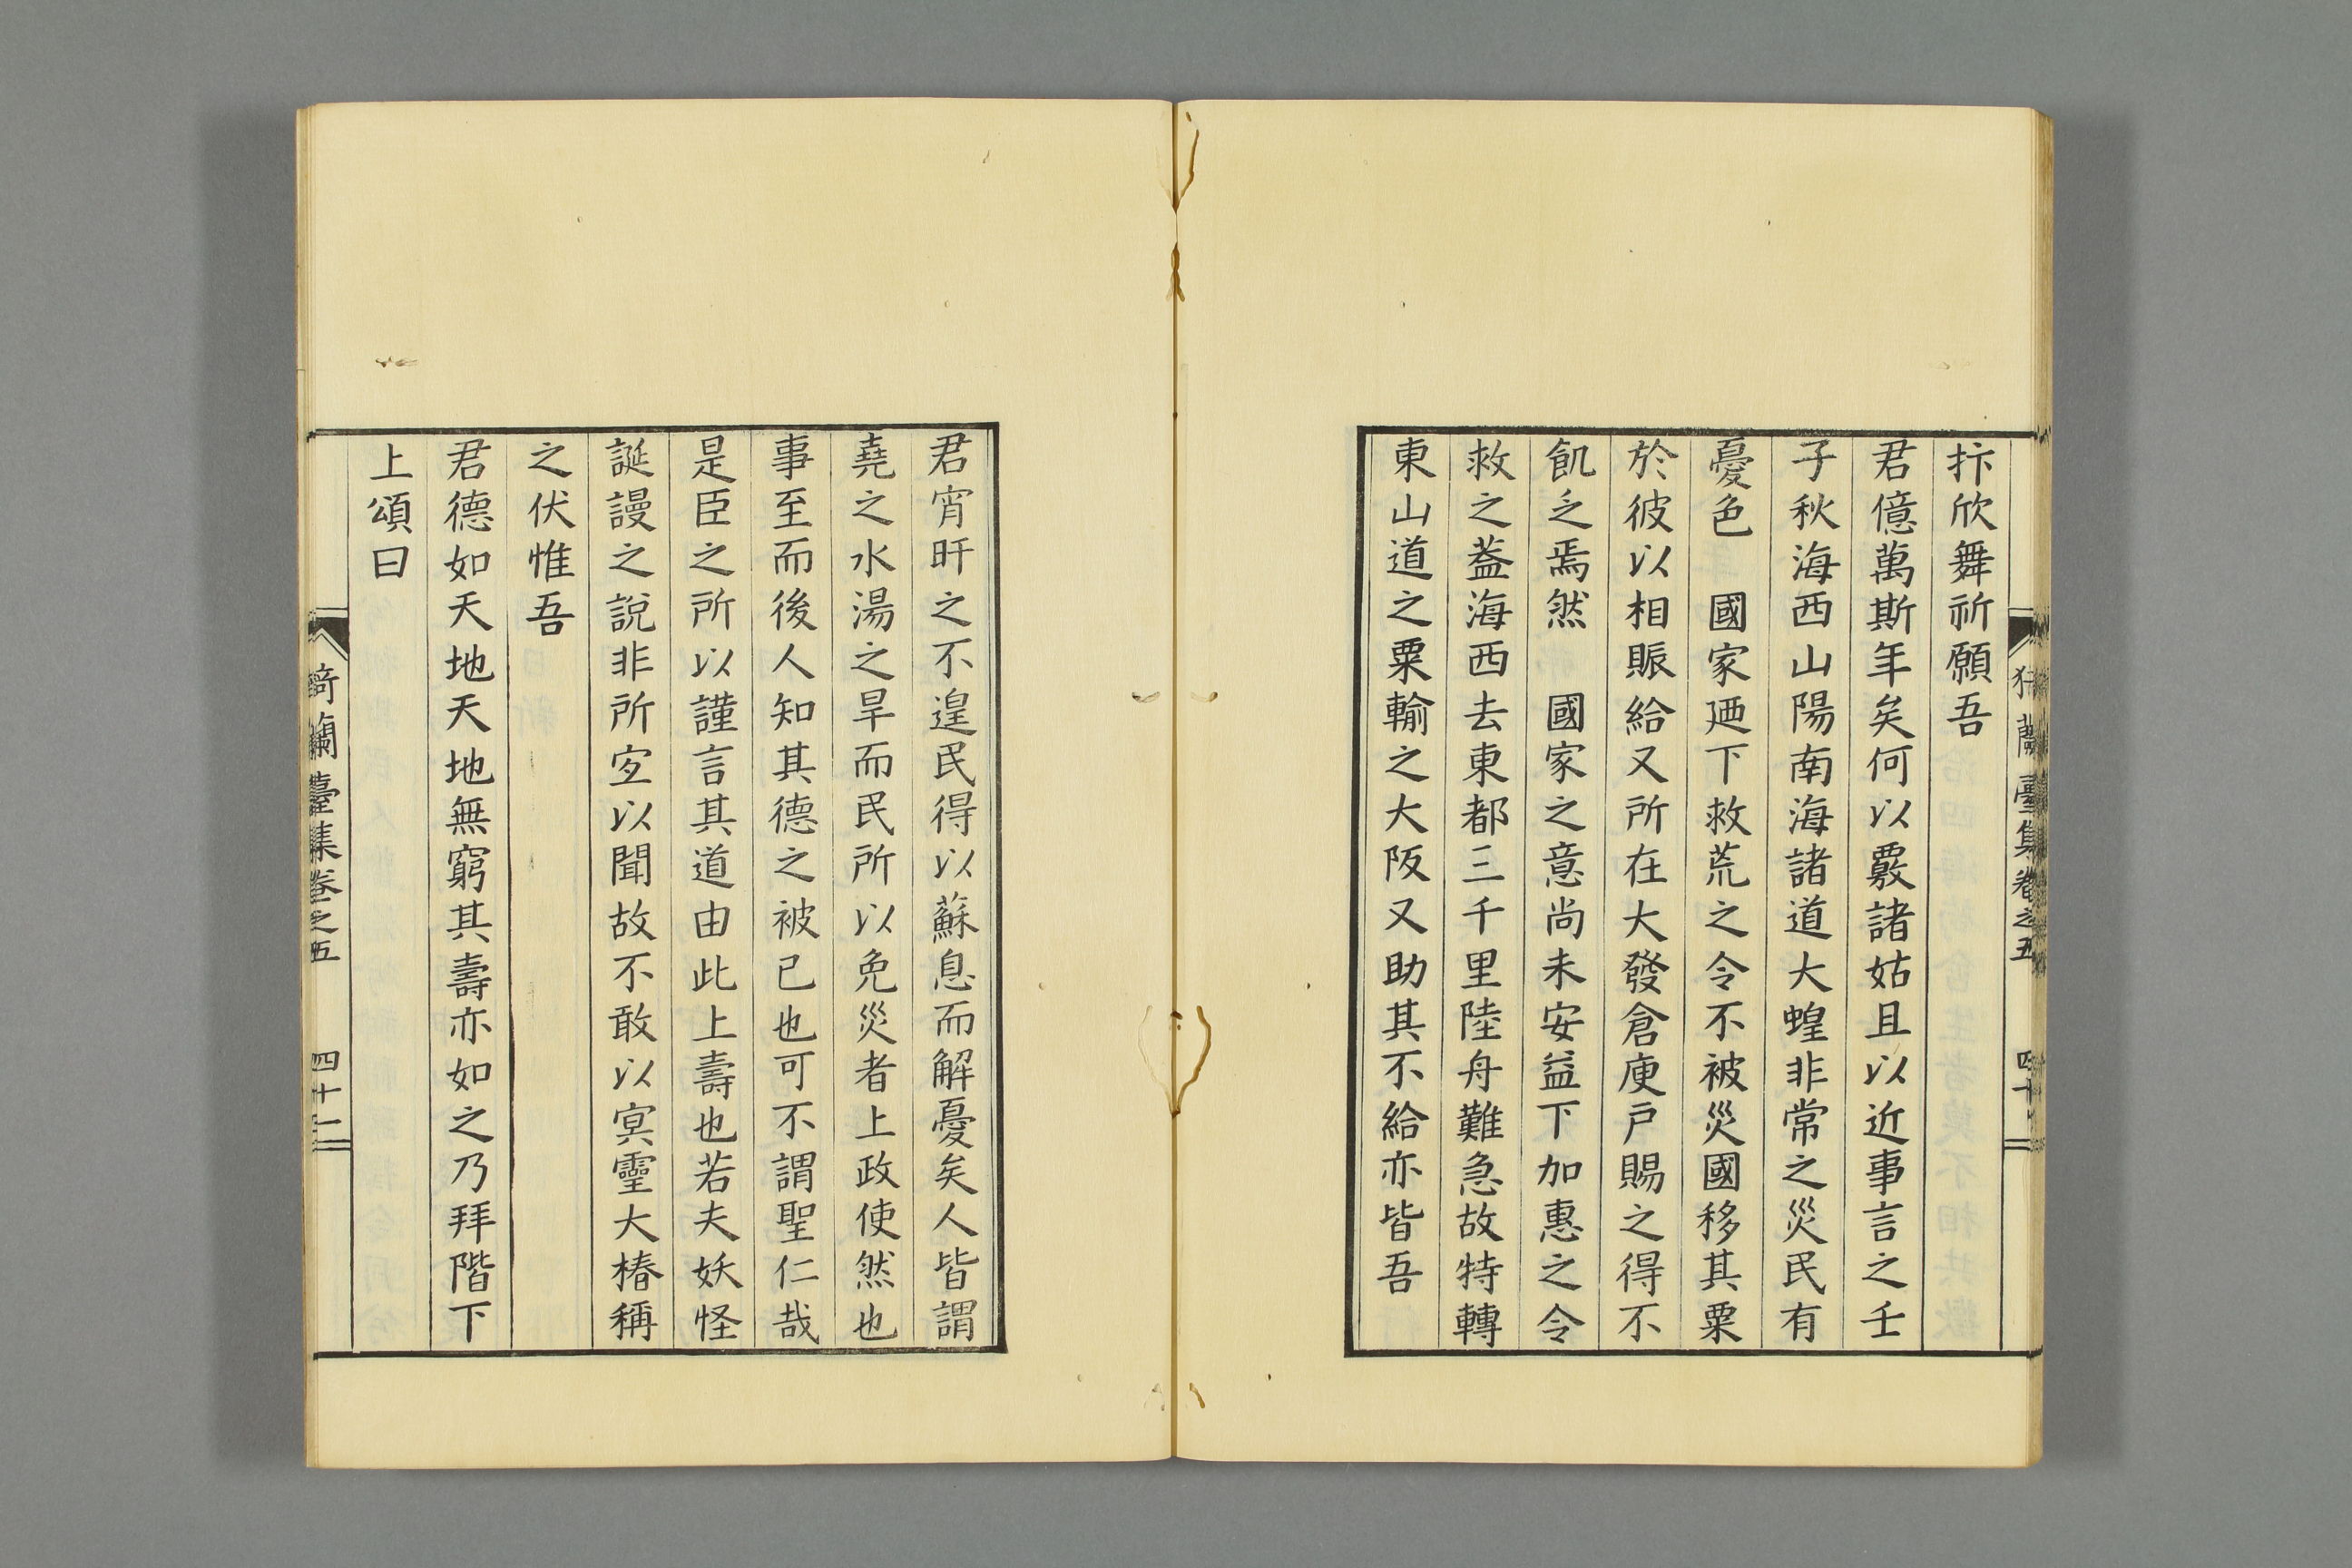 抃欣舞祈願吾
君億萬斯年矣何以覈諸姑且以近事言之壬
子秋海西山陽南海諸道大蝗非常之災民有
憂色　國家廼下救荒之令不被災國移其粟
於彼以相賑給又所在大發倉庾戸賜之得不
飢乏焉然　國家之意尚未安益下加惠之令
救之葢海西去東都三千里陸舟難急故特轉
東山道之粟輸之大阪又助其不給亦皆吾
蘭臺集卷之五
四十
君宵旰之不遑民得以蘇息而解憂矣人皆謂
堯之水湯之旱而民所以免災者上政使然也
事至而後人知其德之被已也可不謂聖仁哉
是臣之所以謹言其道由此上壽也若夫妖怪
誕謾之説非所宐以聞故不敢以冥靈大椿稱
之伏惟吾
君德如天地天地無窮其壽亦如之乃拜階下
上頌曰
蘭臺集卷之五
四十二